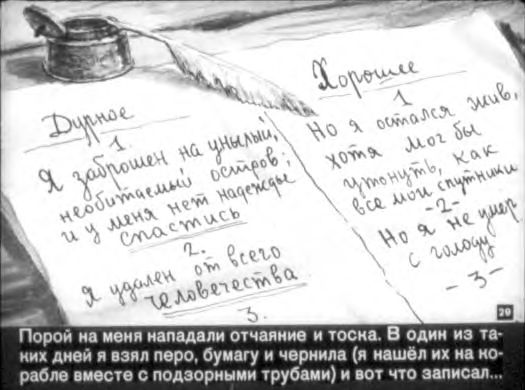 Дурное
1.
Я заброшен на унылый,
необитаемый остров;
и у меня нет надежды
спастись
2.
Я удален от всего
человечества
3.
Хорошее
1
Но я остался жив,
хотя мог бы
утонуть, как
все мои спутники
-2-
Но я не умер
с голоду
-3-
29
Порой на меня нападали отчаяние и тоска. В один из та-
ких дней я взял перо, бумагу и чернила (я нашёл их на ко-
рабле вместе с подзорными трубами) и вот что записал...